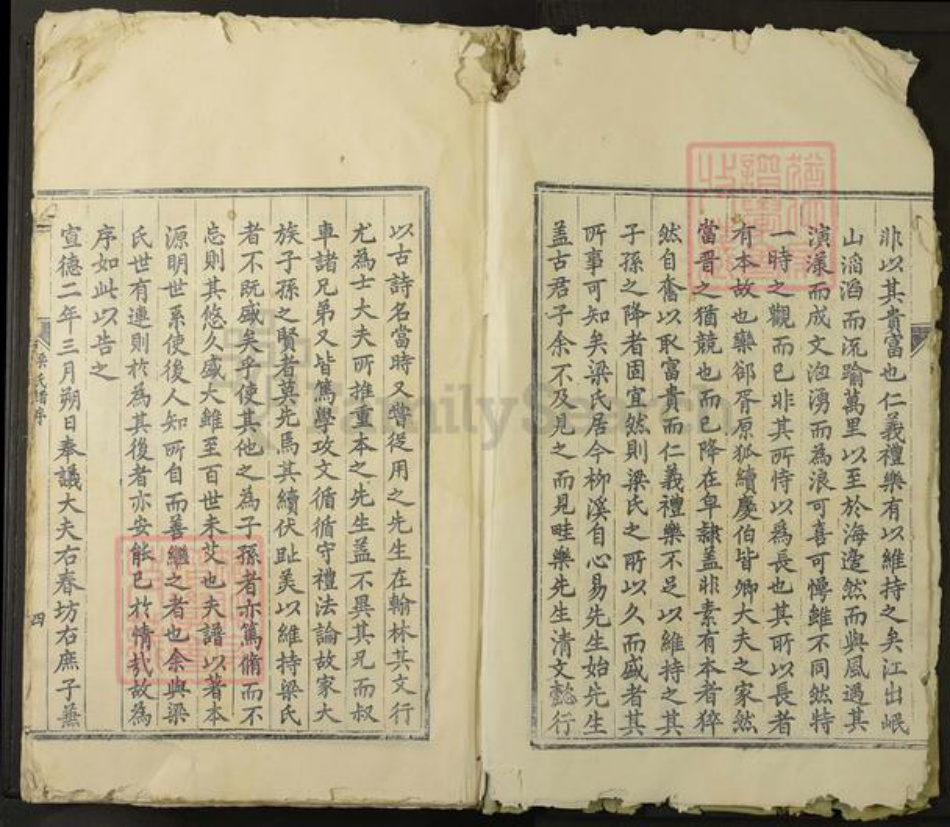 非以其貴富也仁義禮樂有以維持之矣江出岷
山滔滔而流踰萬里以至於海邍然而與風遇其
演漾而成文洶湧而為浪可喜可愕雖不同然特
一時之觀而已非其所恃以為長也其所以長者
有本故也欒郤胥原狐續慶伯皆卿大夫之家然
當晋之猶競也而已降在皁隷蓋非素有本者猝
然自奮以取富貴而仁義禮樂不足以維持之其
子孫之降者固宜然則梁氏之所以久而盛者其
所事可知矣梁氏居今柳溪自心易先生始先生
盖古君子余不及見之而見畦樂先生清文懿行
以古詩名當時又嘗從用之先生在翰林其文行
尤為士大夫所推重本之先生盖不異其兄而叔
車諸兄弟又皆篤學攻文循循守禮法論故家大
族子孫之賢者莫先焉其續伏趾美以維持梁氏
者不既盛矣乎使其他之為子孫者亦篤脩而不
忘則其悠久盛大雖至百世未艾也夫譜以著本
源明世系使後人知所自而善繼之者也余與梁
氏世有連則於為其後者亦安能已於情哉故為
序如此以告之
宣德二年三月朔日奉議大夫右春坊右庶子蒹
梁氏譜序
四
FamilySearch